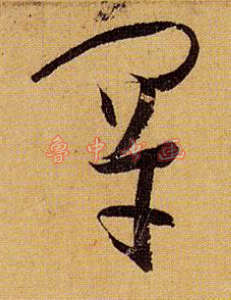 罕
鲁中书画